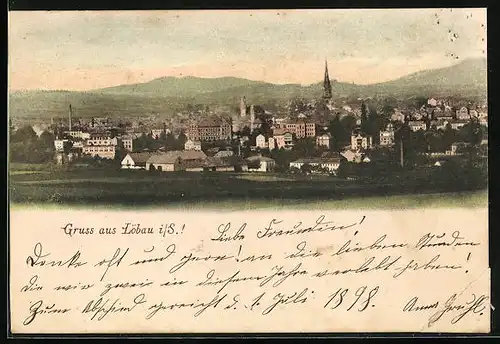 Gruss aus Löbau i/S.!
Liebe Freundin!
Denke oft und gern an die lieben Stunden
die wir zwei in diesem Jahre verlebt haben!
Zum Abschied gereicht d. 1. Juli 1898. Anna